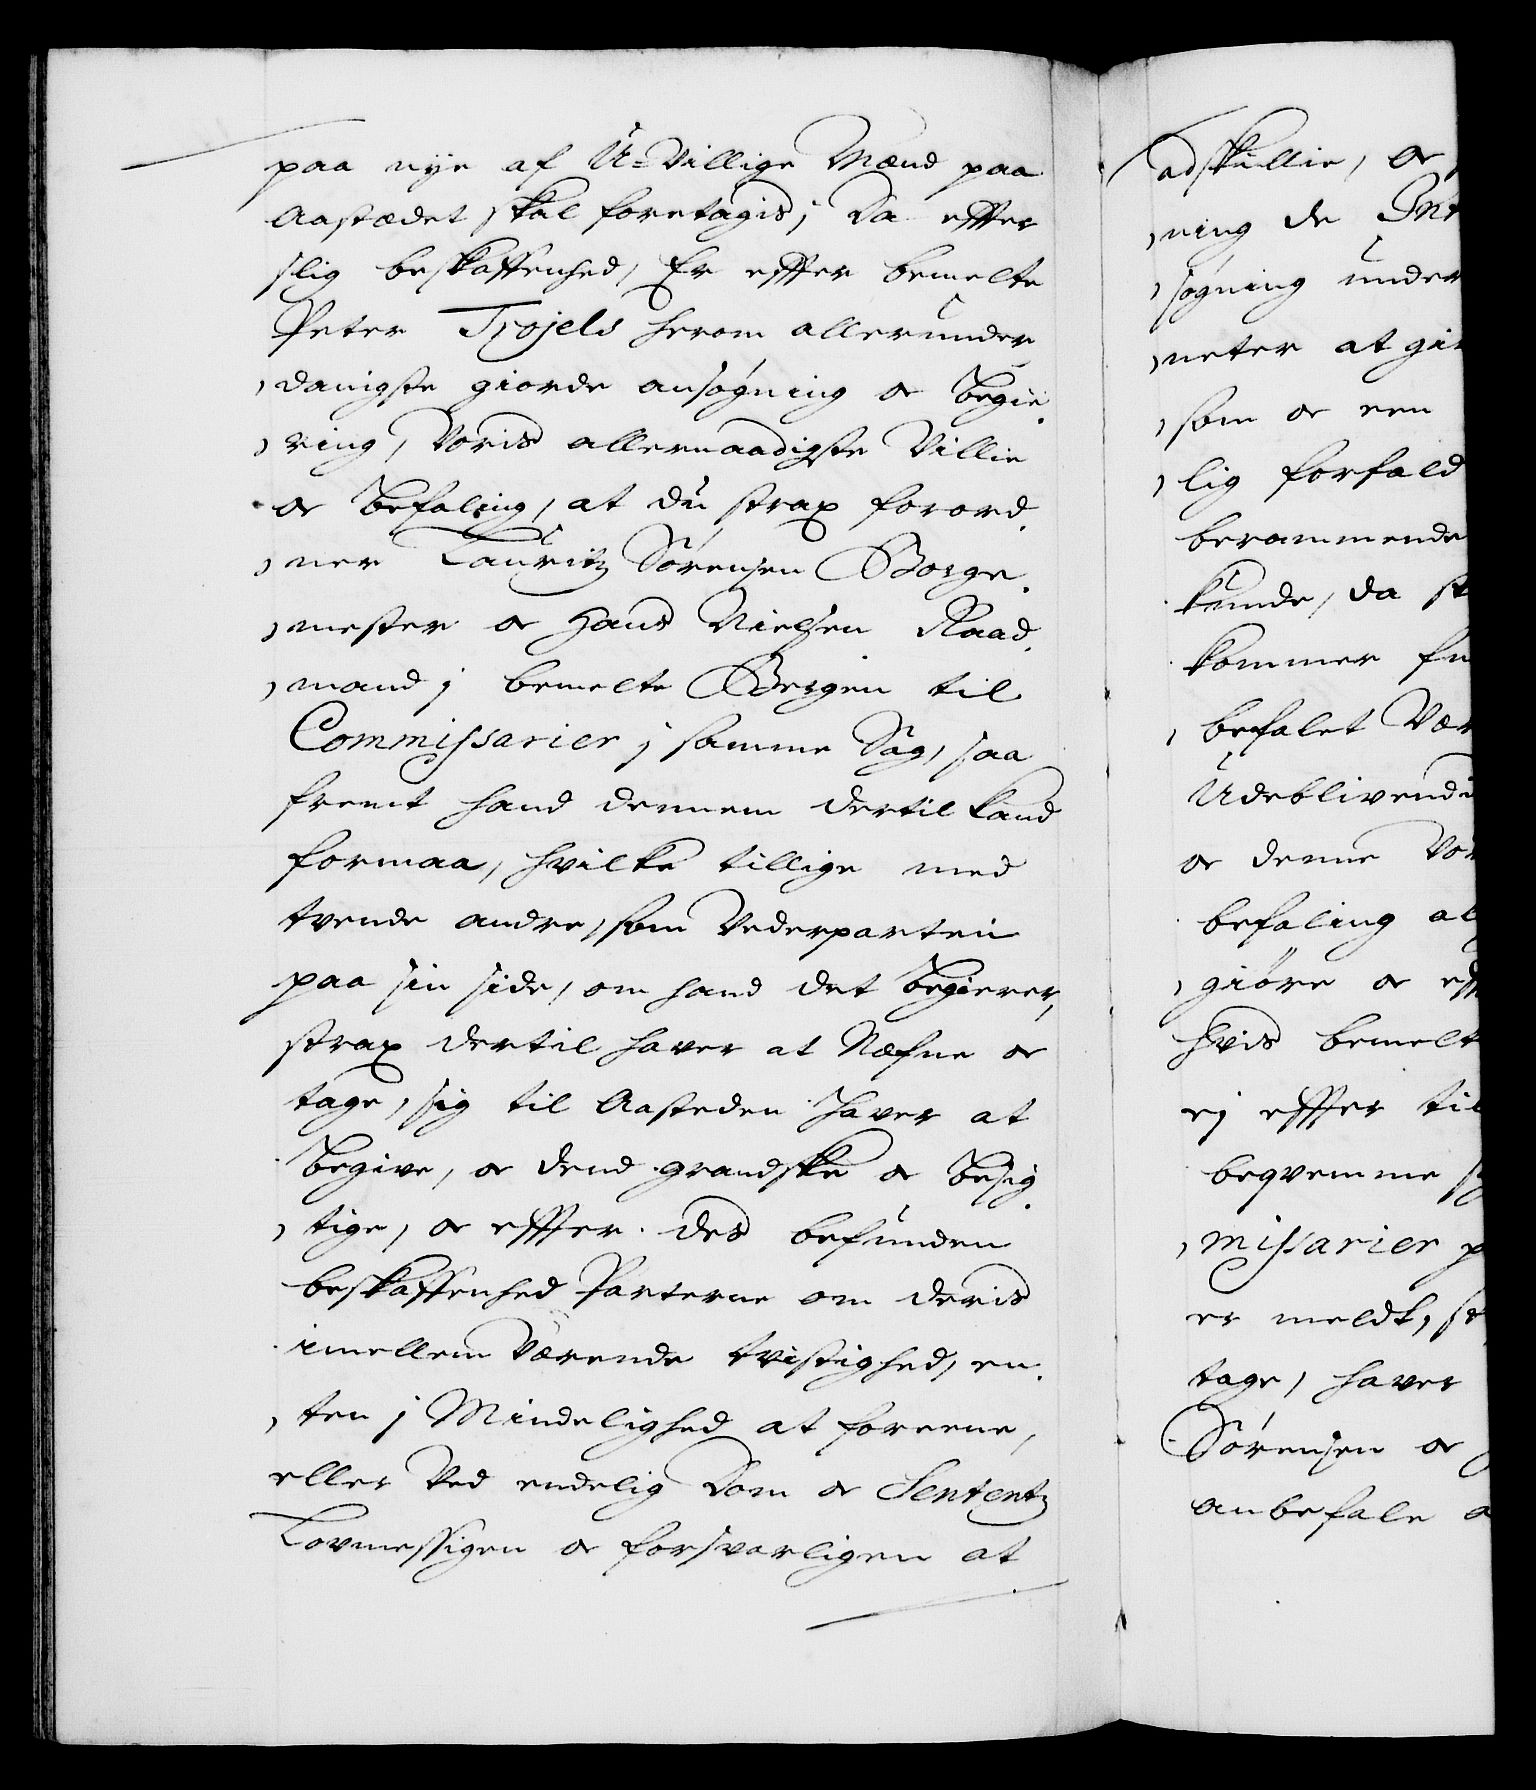 paa nye af U-Villige Mænd paa
Aastædet skal foretagis; Da effter
slig beskaffenhed, Er effter bemelte
Peter Trojels herom allerunder
danigste giorde ansøgning oc Begie
ring, Voris allernaadigste Villie
oc Befaling, at du strax forord
ner Lauritz Sørensen Borge
mester oc Hans Nielsen Raad
mand j bemelte Bergen til
Commissarier j samme Sag, saa
fremt hand dennem dertil kand
formaa, hvilke tillige med
tvende andre, som Vederparten
paa sin side, om hand det Begierer,
strax dertil haver at Næfne oc
tage, sig til Aasteden haver at
Begive, oc dend grandske oc Besig
tige, oc effter des befunden
beskaffenhed Parterne om deris
imellem Værende tvistighed, en
ten j Mindelighed at foreene,
eller Ved endelig Dom oc Sententz
Lovmessigen oc forsvarligen at
adskillie, oc
ning de
søgning under
neter at gi
som oc een
lig forfald
berammende
kunde, da st
kommer
befalet Vær
Udeblivend
oc denne Vor
befaling al
giøre oc eff
hvis bemelt
ej effter til
beqvemme
missarier p
er meldt, s
tage, haver
Sørensen oc
anbefale